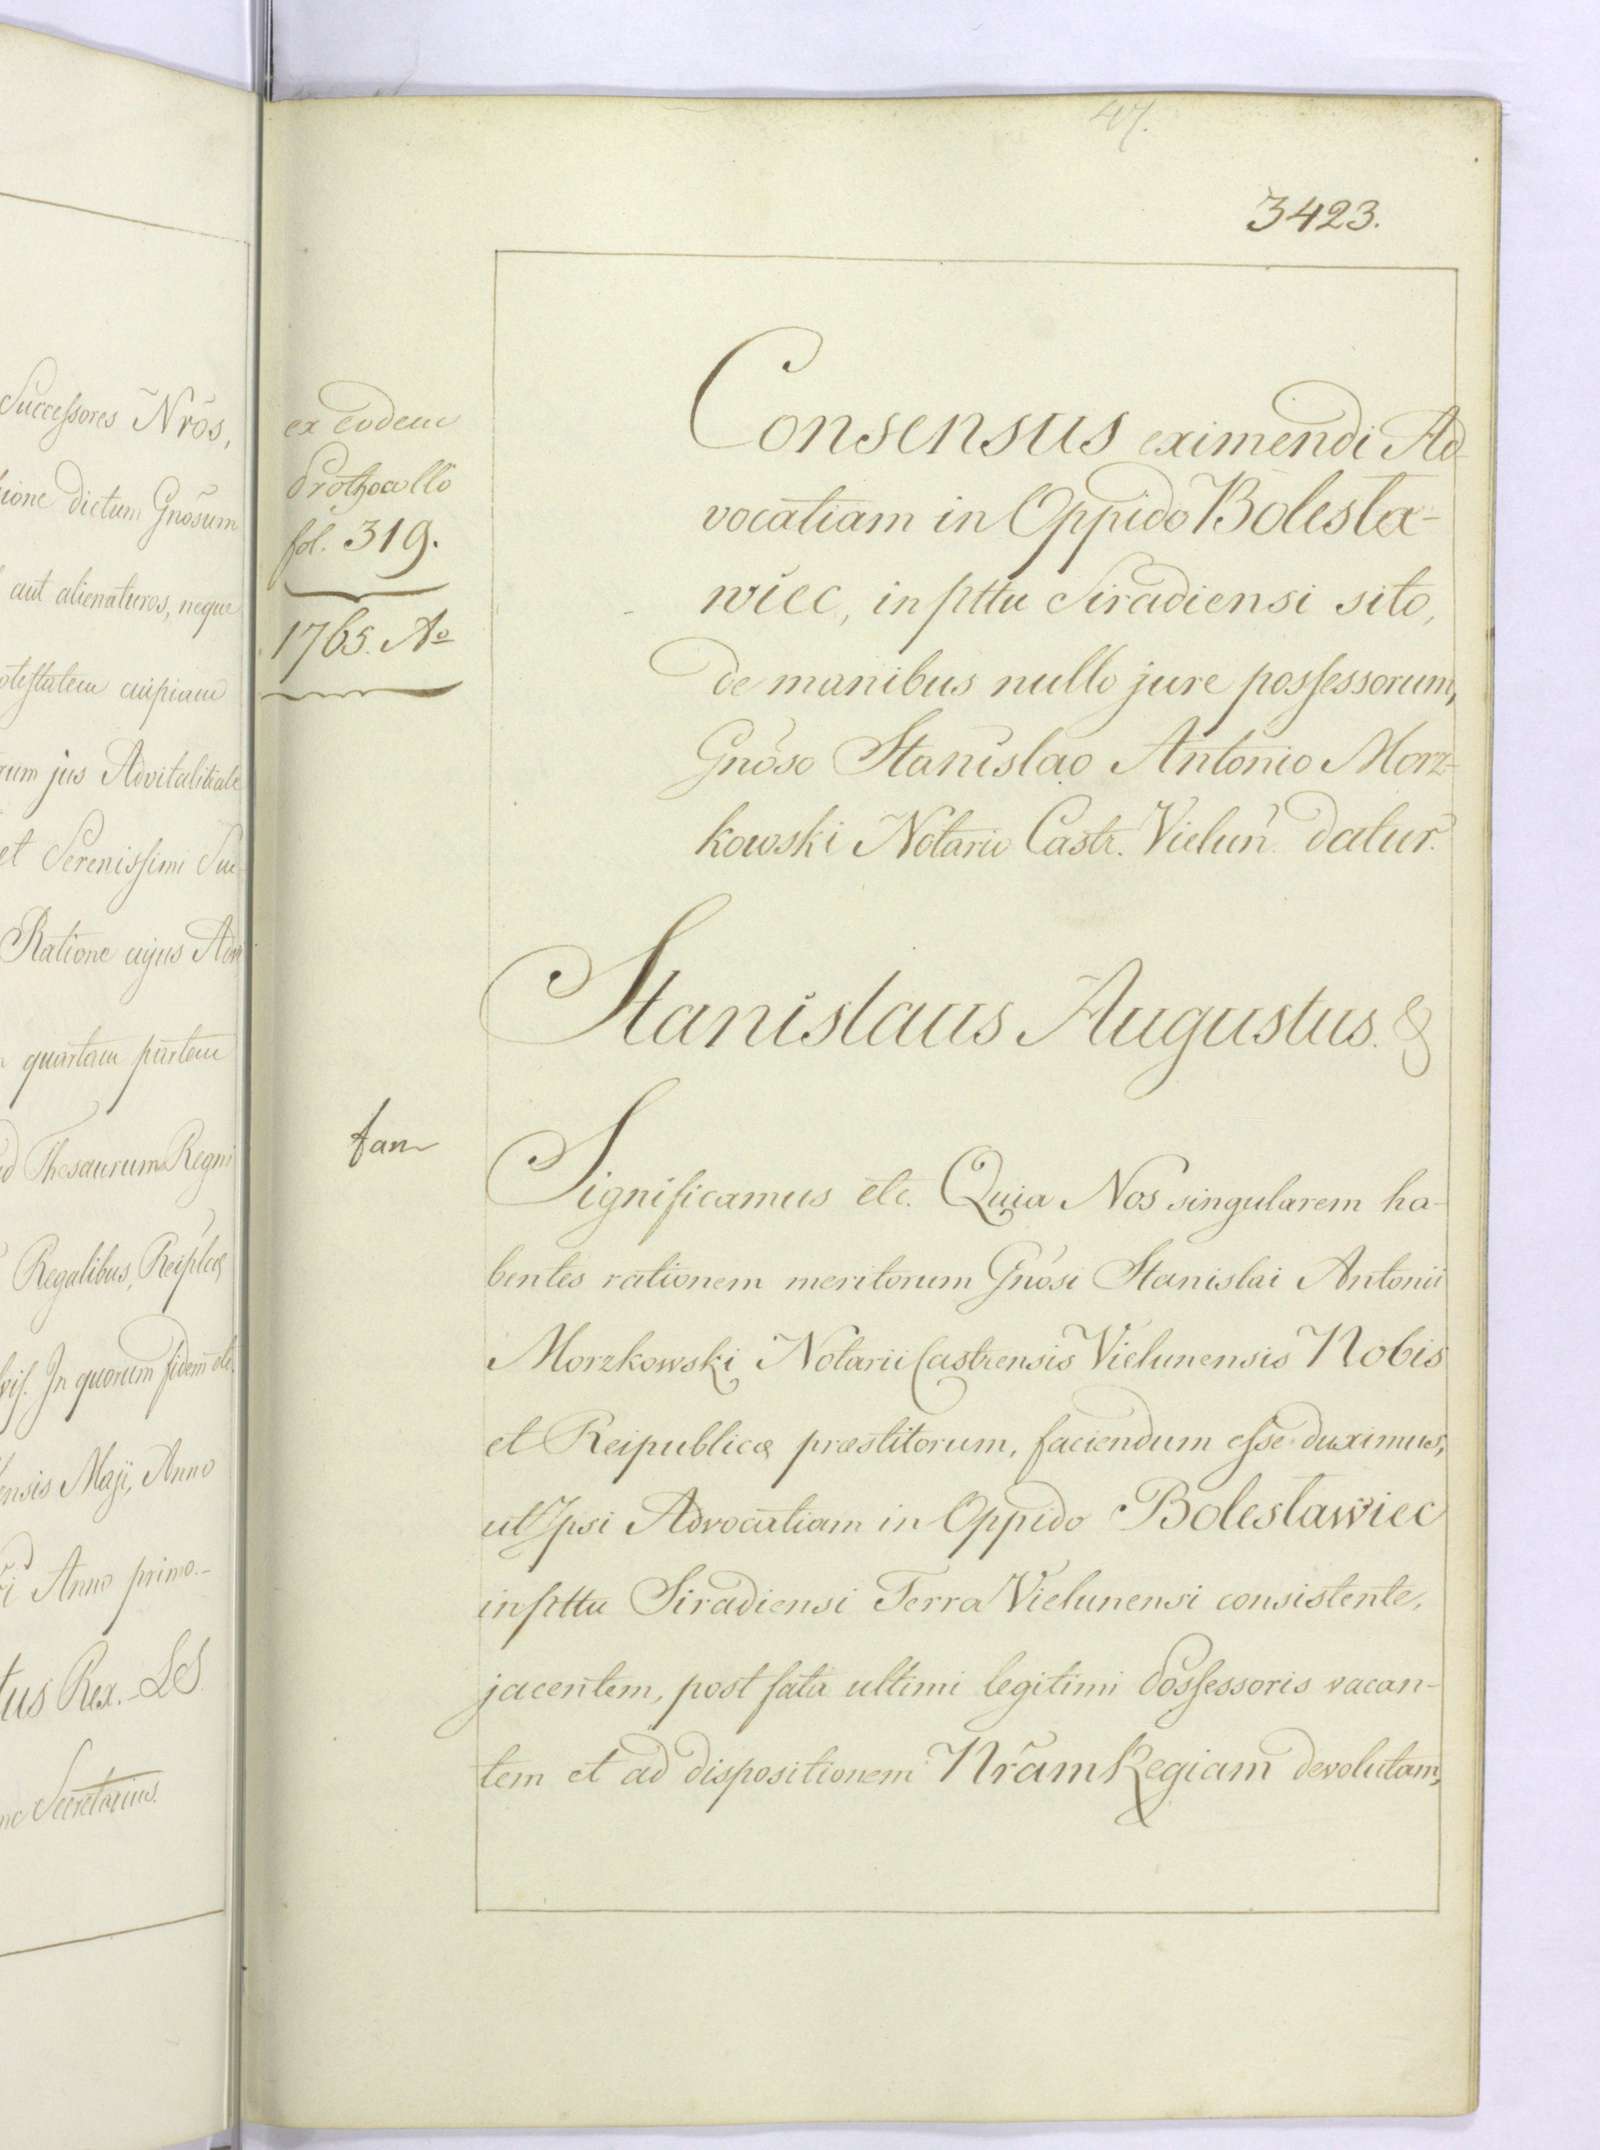 Successores Nrõs,
dictum Gnõsum
aut alienaturos, neque
cuipiam
jus Advitalitiale
et Serenissimi Suc-
Ratione cujus Adv
quartam partem
Thesaurum Regni
Regalibus, Reiplcæ
In quorum fidem etc.
Maji, Anno
Anno primo.-
Rex.- LS.
Secretarius.
47.
3423.
ex eodem
Prothocollo
fol. 319.
1765. Aº
Consensus eximendi Ad-
vocatiam in Oppido Bolesla-
wiec, in pttu Siradiensi sito,
de manibus nullo jure possessorum,
Gnõso Stanislao Antonio Morz-
kowski Notario Castr. Vielun̄. datur.
Stanislaus Augustus. &
Significamus etc. Quia Nos singularem ha-
bentes rationem meritorum Gnõsi Stanislai Antonii
Morzkowski Notarii Castrensis Vielunensis Nobis
et Reipublicæ præstitorum, faciendum esse duximus,
ut Ipsi Advocatiam in Oppido Boleslawiec
in pttu Siradiensi Terra Vielunensi consistente,
jacentem, post fata ultimi legitimi Possessoris vacan-
tem et ad dispositionem Nrãm Regiam devolutam,